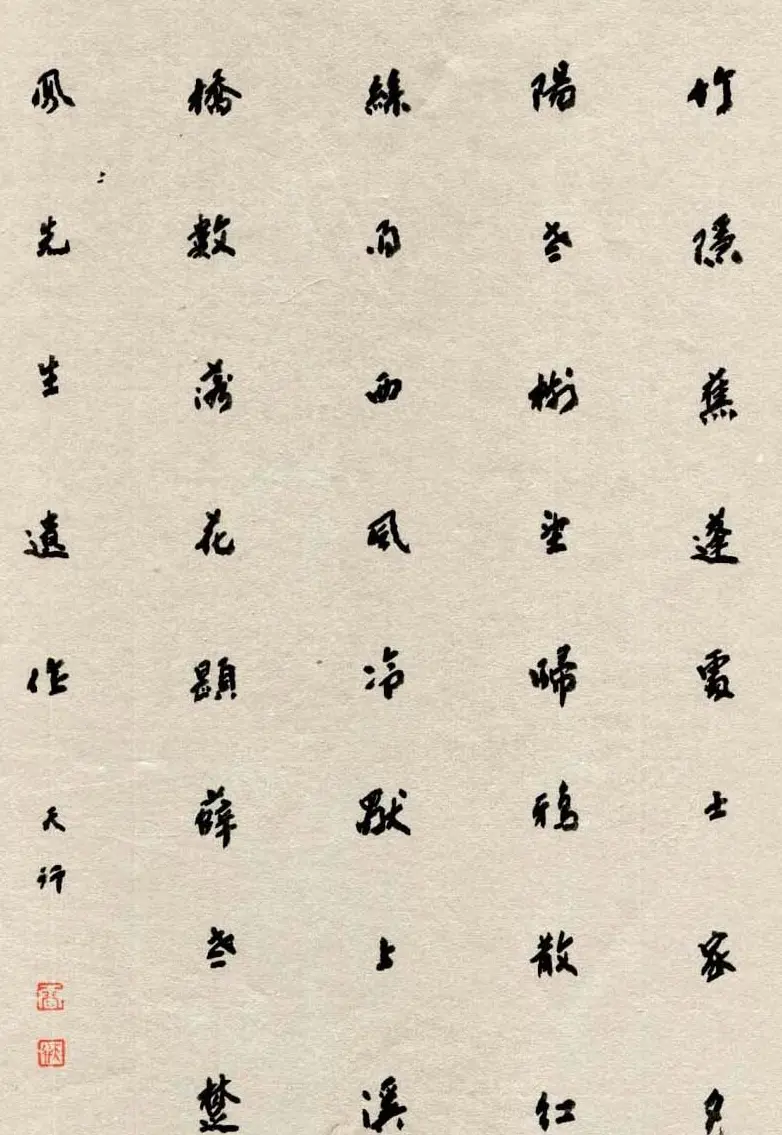 竹隱蕉蓬處士家夕
陽老樹望歸鴉散紅
綠雨西風冷上溪
橋數落花題薛老楚
鳳先生遺作
天行